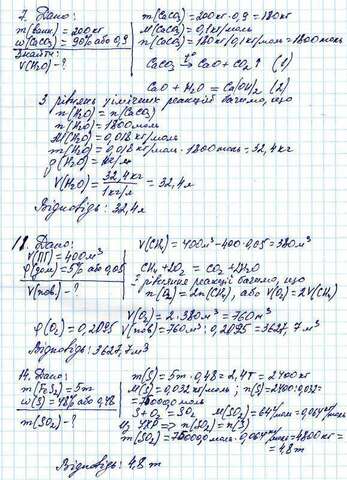 7. Дано:
m(вапн.) = 200кг
w(CaCO₃) = 90% або 0,9
Знайти:
V(H₂O) - ?
m(CaCO₃) = 200кг · 0,9 = 180кг
M(CaCO₃) = 0,1кг/моль
n(CaCO₃) = 180кг/0,1кг/моль = 1800моль
CaCO₃ → CaO + CO₂↑ (1)
CaO + H₂O = Ca(OH)₂ (2)
З рівнянь хімічних реакцій бачимо, що
n(H₂O) = n(CaCO₃)
n(H₂O) = 1800моль
M(H₂O) = 0,018кг/моль
m(H₂O) = 0,018кг/моль · 1800моль = 32,4кг
ρ(H₂O) = 1кг/л
V(H₂O) = 32,4кг / 1кг/л = 32,4л
Відповідь: 32,4л
Дано:
V(ПГ) = 400м³
φ(дом) = 5% або 0,05
V(пов.) - ?
V(CH₄) = 400м³ - 400 · 0,05 = 380м³
CH₄ + 2O₂ = CO₂ + 2H₂O
З рівняння реакції бачимо, що
n(O₂) = 2n(CH₄), або V(O₂) = 2V(CH₄)
V(O₂) = 2 · 380м³ = 760м³
φ(O₂) = 0,2095 V(пов) = 760м³ : 0,2095 = 3627,7м³
Відповідь: 3627,7м³
Дано:
m(FeS₂) = 5т
w(S) = 48% або 0,48
m(SO₂) - ?
m(S) = 5т · 0,48 = 2,4т = 2400кг
M(S) = 0,032кг/моль; n(S) = 2400 : 0,032 =
= 75000моль
S + O₂ = SO₂ M(SO₂) = 64г/моль = 0,064кг/моль
Із УХР => n(SO₂) = n(S)
m(SO₂) = 75000моль · 0,064кг/моль = 4800кг =
= 4,8т
Відповідь: 4,8т